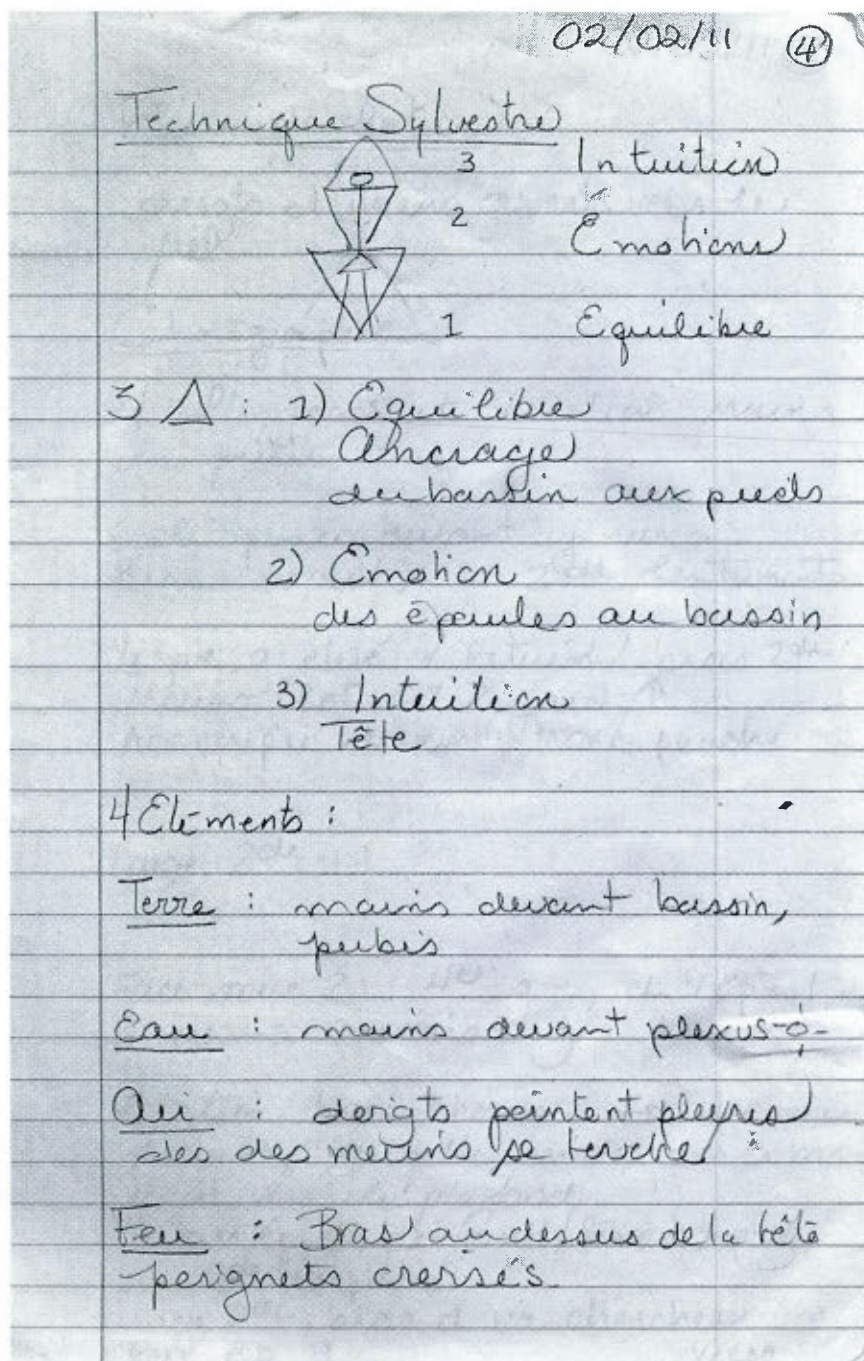 02/02/11 ④
Technique Sylvestre
3 Intuition
2 Emotions
1 Equilibre
3 △ : 1) Equilibre
Ancrage
du bassin aux pieds
2) Emotion
des épaules au bassin
3) Intuition
Tête
4 Eléments :
Terre : mains devant bassin,
pubis
Eau : mains devant plexus
Air : doigts pointent
dos des mains se touche
Feu : Bras au dessus de la tête
poignets croisés.